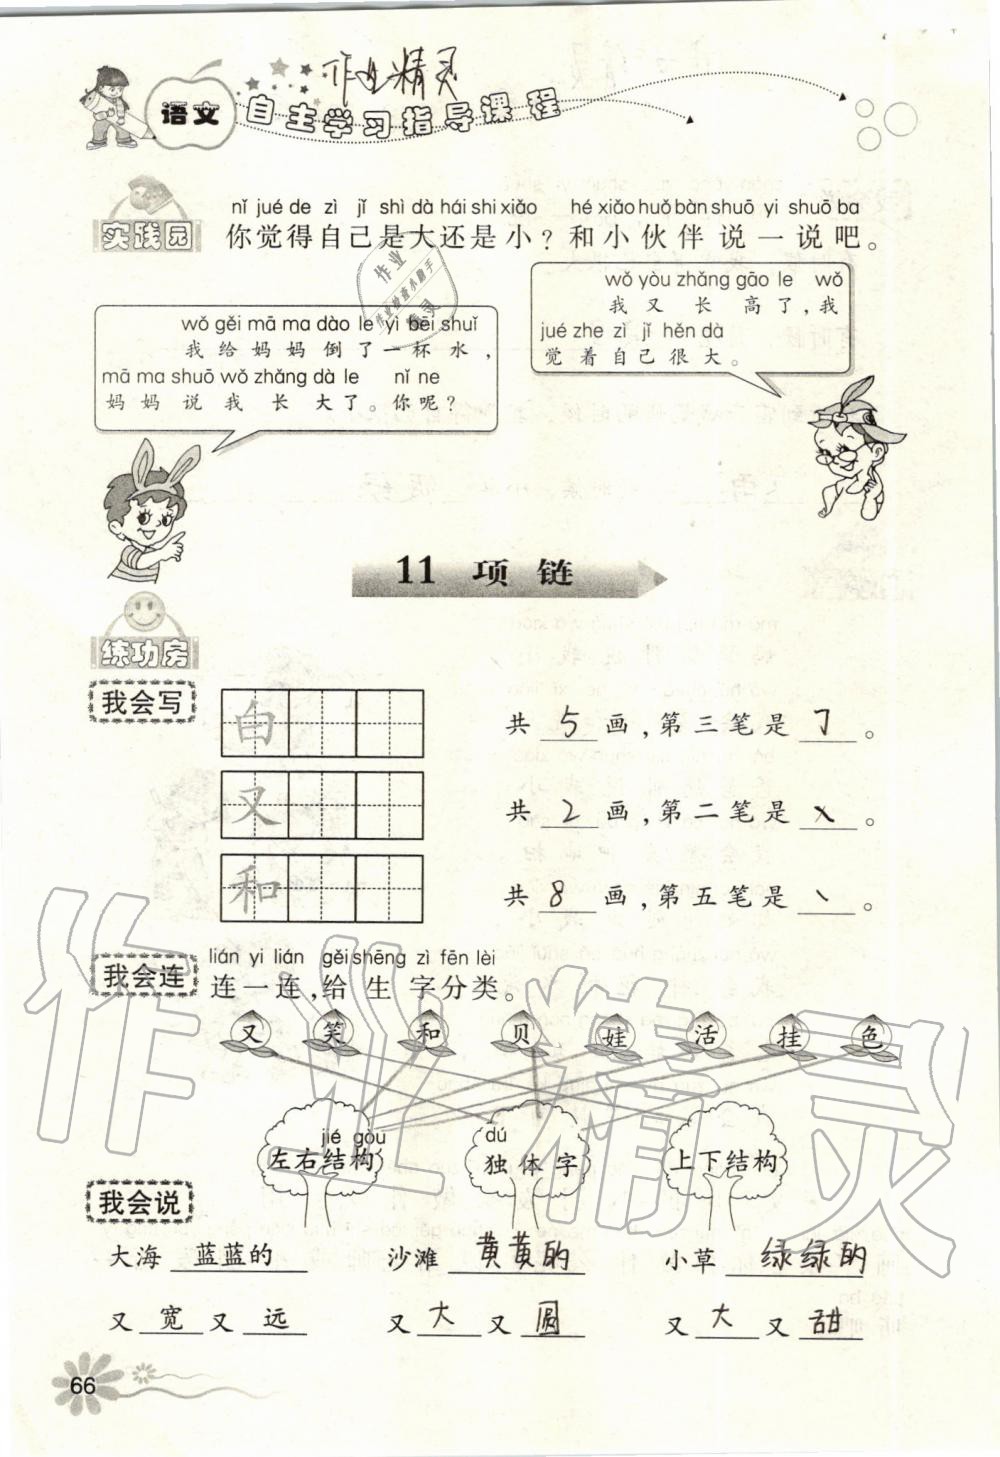 作业精灵
语文 自主学习指导课程
实践园
nǐ jué de zì jǐ shì dà hái shi xiǎo hé xiǎo huǒ bàn shuō yi shuō ba
你觉得自己是大还是小？和小伙伴说一说吧。
wǒ yòu zhǎng gāo le wǒ
我又长高了，我
jué zhe zì jǐ hěn dà
觉着自己很大。
wǒ gěi mā ma dào le yì bēi shuǐ
我给妈妈倒了一杯水，
mā ma shuō wǒ zhǎng dà le nǐ ne
妈妈说我长大了。你呢？
11 项链
练功房
我会写
白 共 5 画，第三笔是 ㇆ 。
又 共 2 画，第二笔是 ㇏ 。
和 共 8 画，第五笔是 丶 。
我会连
lián yi lián gěi shēng zì fēn lèi
连一连，给生字分类。
又 笑 和 贝 娃 活 挂 色
jié gòu dú
左右结构 独体字 上下结构
我会说
大海 蓝蓝的 沙滩 黄黄的 小草 绿绿的
又 宽 又 远 又 大 又 圆 又 大 又 甜
66
作业精灵